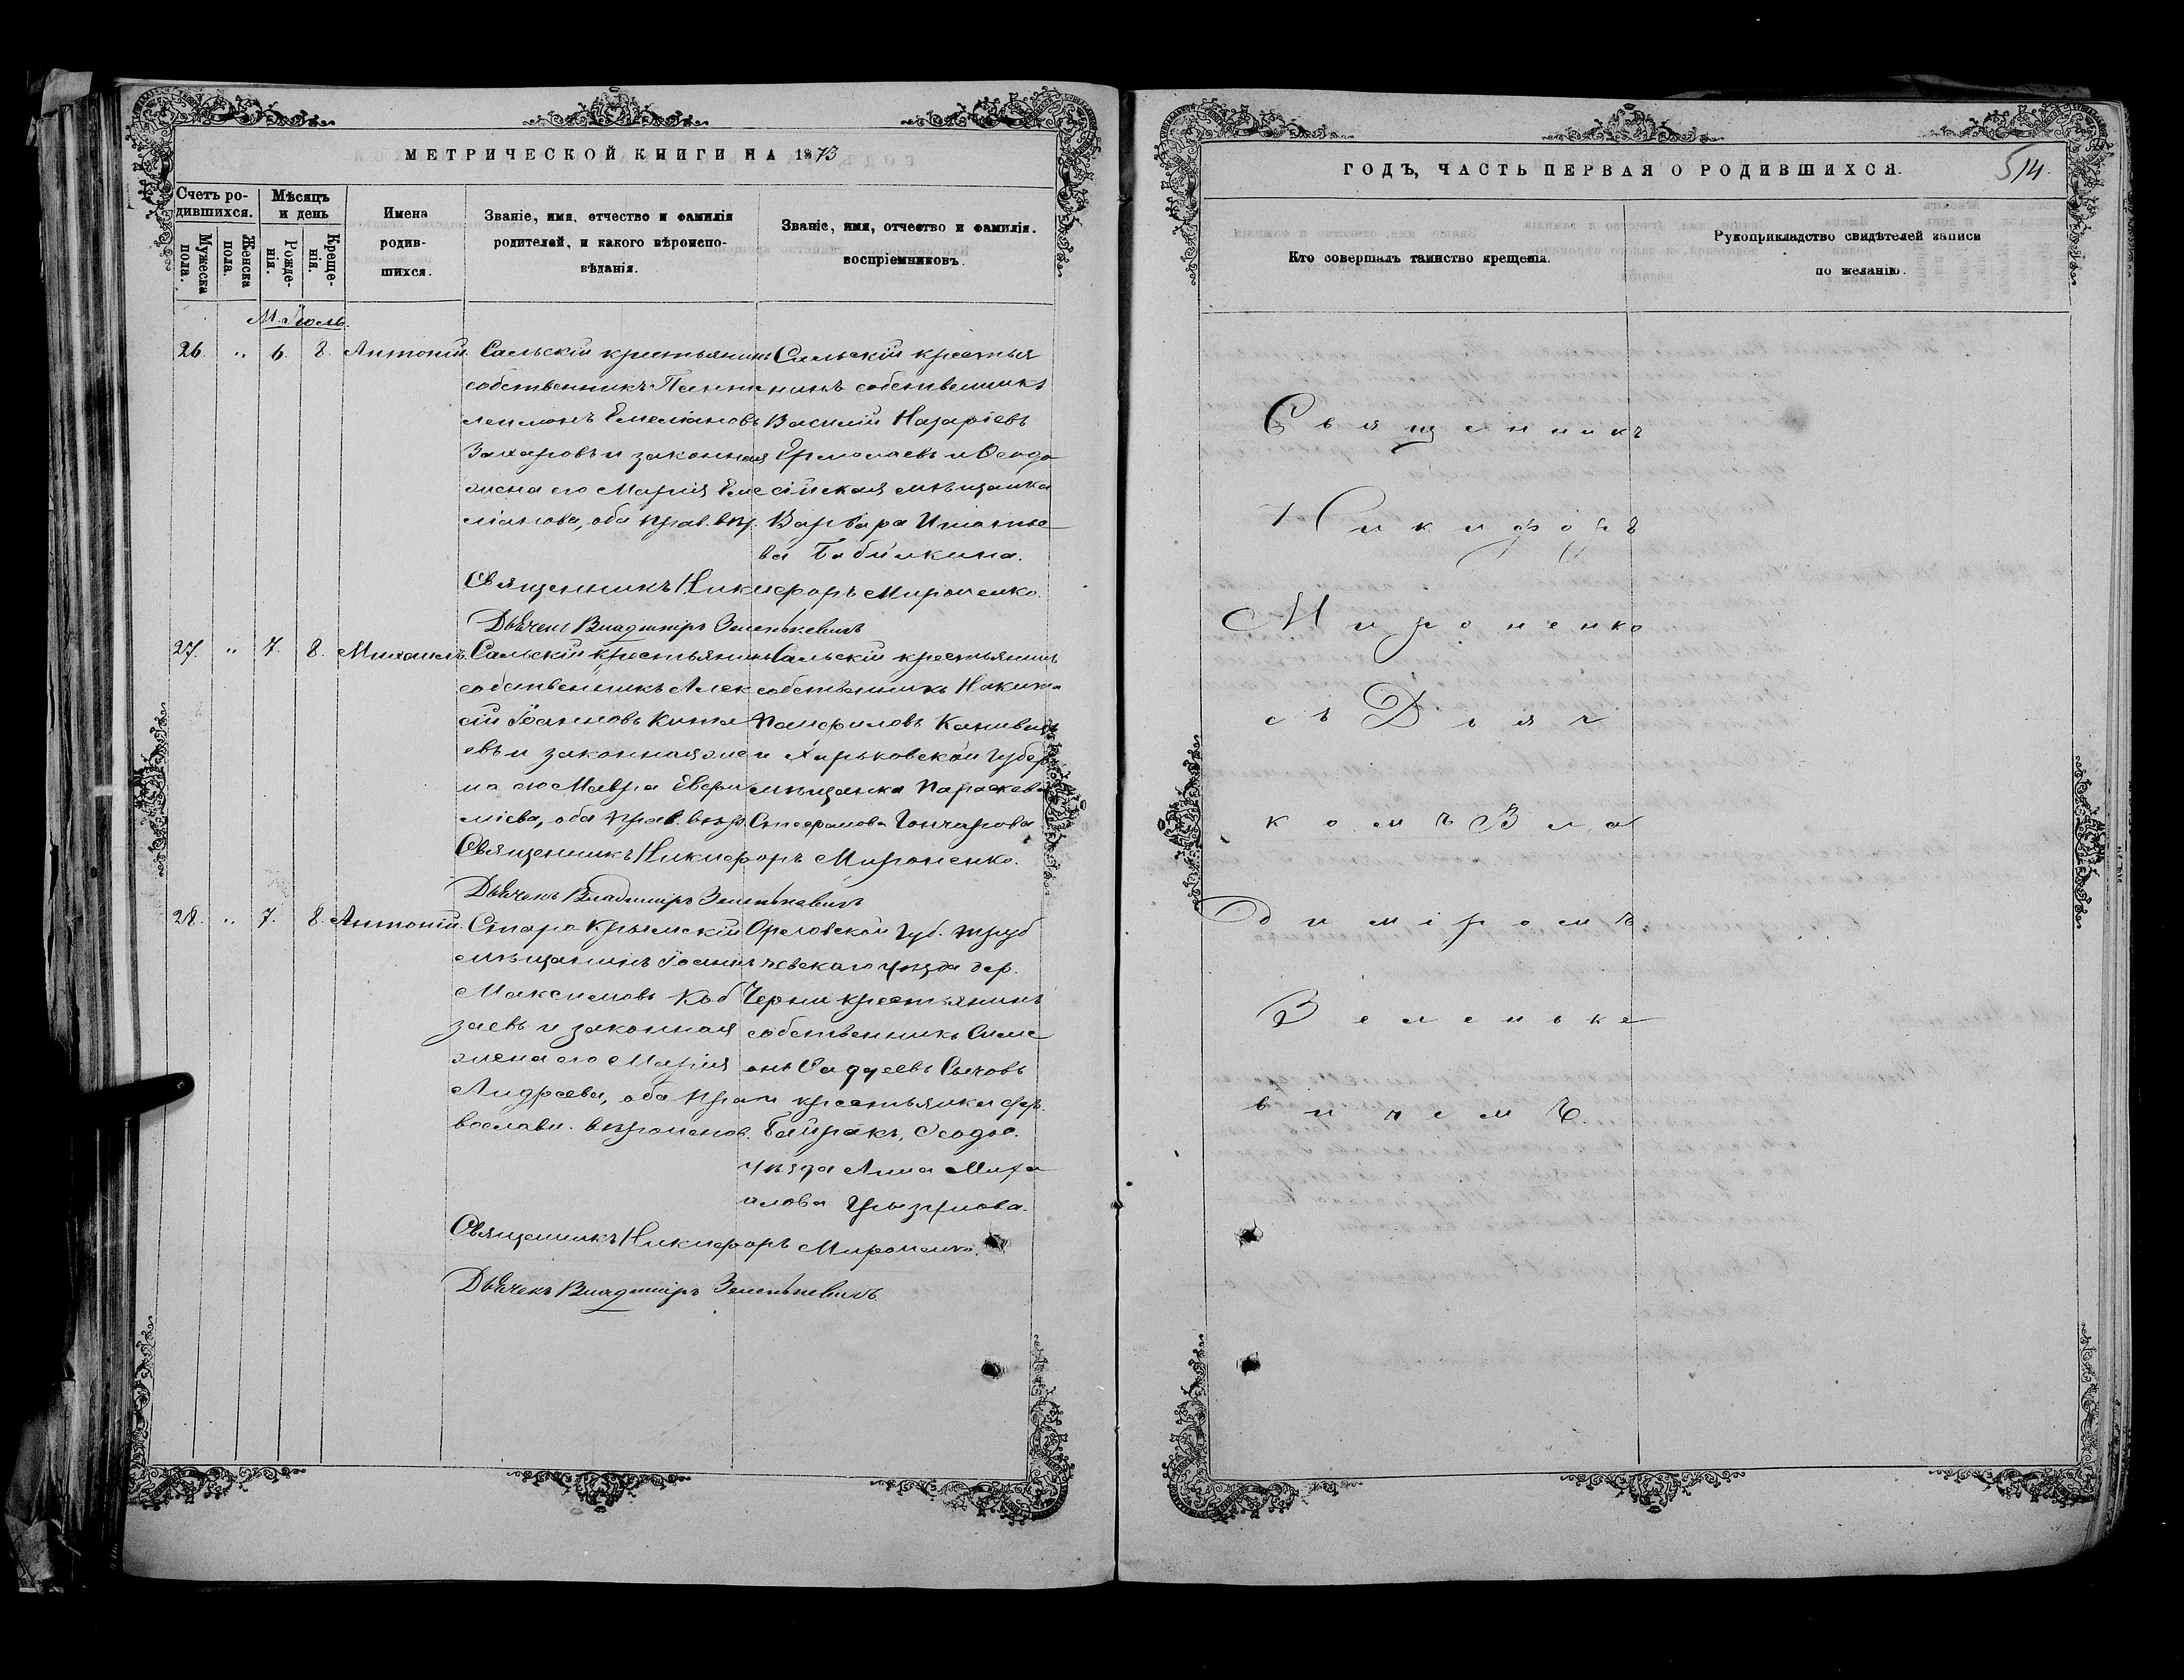 МЕТРИЧЕСКОЙ КНИГИ НА 1873
Счетъ ро-
дившихся.
Мѣсяцъ
и день
Мужеска
пола.
Женска
пола.
Рожде-
нія.
Креще-
нія.
Имена
родив-
шихся.
Званіе, имя, отчество и фамилія
родителей, и какого вѣроиспо-
вѣданія.
Званіе, имя, отчество и фамилія.
воспріемниковъ.
М. Іюль.
26. " 6. 8. Антоній
Сальскій крестьянинъ
собственникъ Панте
леимонъ Емеліановъ
Захаровъ и законная
жена его Марія Еме
ліанова, оба прав. вѣр.
Сальскій крестья
нинъ собственникъ
Василій Назаріевъ
Ермолаевъ и Ѳеодо
сійская мѣщанка
Варвара Игнатье
ва Бабушкина.
Священникъ Никифоръ Мироненко.
Дьячекъ Владиміръ Зеленькевичъ
27. " 7. 8. Михаилъ
Сальскій крестьянинъ
собственникъ Алек
сій Іоанновъ
евъ и законная же
на его Мавра Евфи
міева, оба прав. вѣр.
Сальскій крестьянинъ
собственникъ Никита
Памфиловъ
и Харьковской губер
мѣщанка Параскева
Стефанова Гончарова
Священникъ Никифоръ Мироненко.
Дьячекъ Владиміръ Зеленькевичъ
28. " 7. 8. Антоній.
Старо-Крымскій
мѣщанинъ Іоаннъ
Максимовъ Коб
заевъ и законная
жена его Марія
Андреева, оба пра
вославн. вѣроиспов.
Орловской губ. Труб
чевскаго уѣзда дер.
Черни крестьянинъ
собственникъ Симе
онъ Ѳаддеевъ Сычовъ
и крестьянка дер.
Байракъ, Ѳеодос.
уѣзда Анна Миха
илова Грызунова.
Священникъ Никифоръ Мироненко.
Дьячекъ Владиміръ Зеленькевичъ.
ГОДЪ, ЧАСТЬ ПЕРВАЯ О РОДИВШИХСЯ.
514.
Кто совершалъ таинство крещенія.
Рукоприкладство свидѣтелей записи
по желанію.
Священникъ
Никифоръ
Мироненко
съ Дьяч
комъ Вла
диміромъ
Зеленьке
вичемъ.